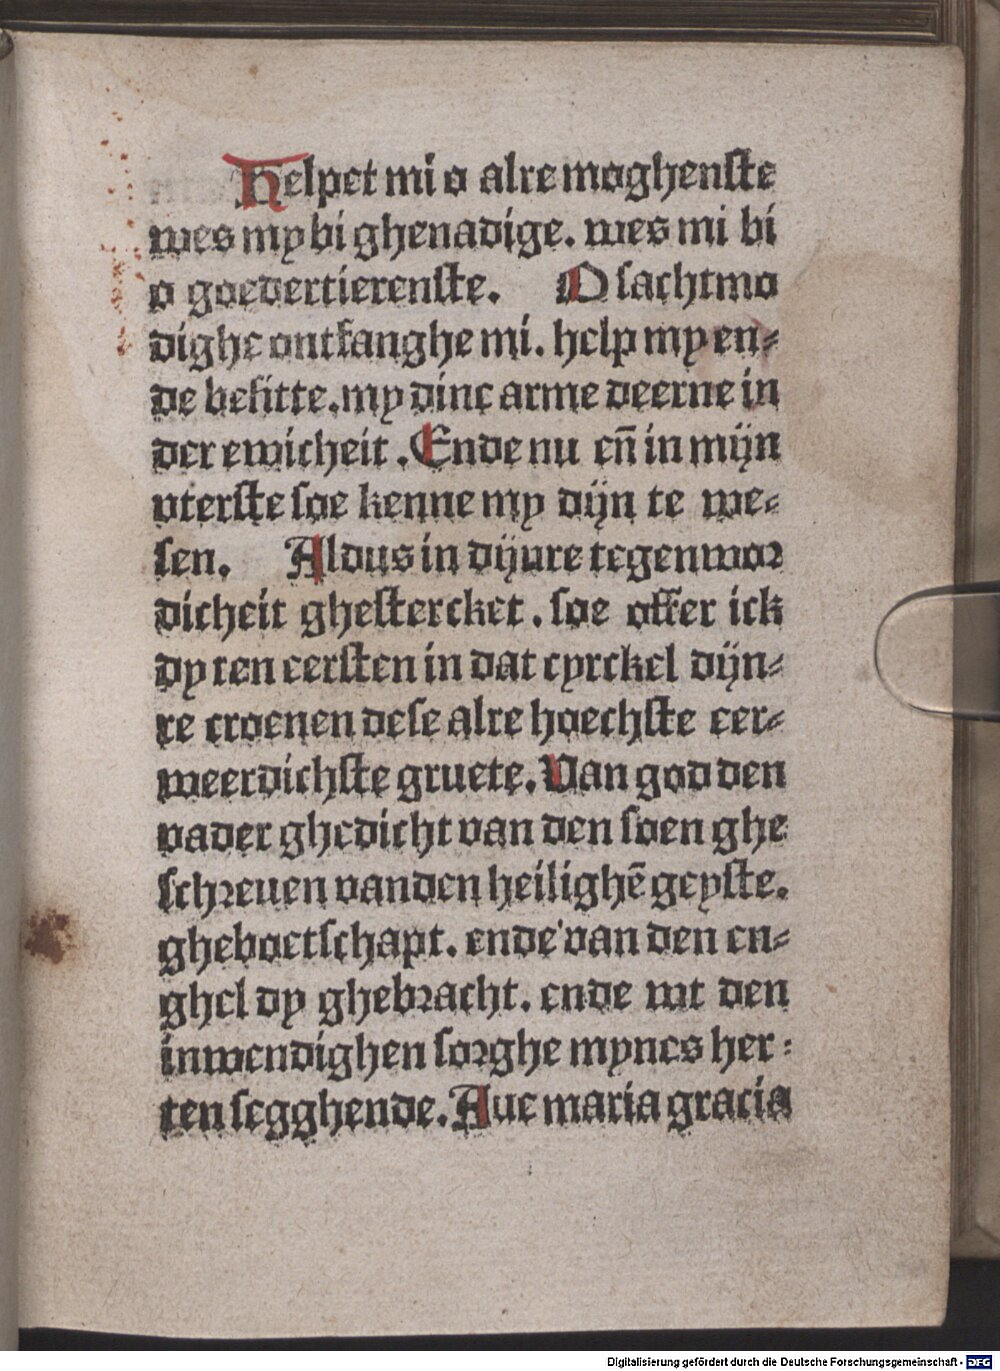 Helpet mi o alre moghenste
wes my bi ghenadige. wes mi bi
o goedertierenste. O sachtmo
dighe ontfanghe mi. help my en⸗
de besitte. my dine arme deerne in
der ewicheit. Ende nu en̄ in mijn
vterste soe kenne my dijn te we⸗
sen. Aldus in dijnre tegenwor
dicheit ghestercket. soe offer ick
dy ten eersten in dat cyrckel dijn⸗
re croenen dese alre hoechste eer⸗
weerdichste gruete. Van god den
vader ghedicht van den soen ghe
schreuen vanden heilighē geyste.
gheboetschapt. ende van den en⸗
ghel dy ghebracht. ende wt den
inwendighen sorghe mynes her⸗
ten segghende. Aue maria gracia
Digitalisierung gefördert durch die Deutsche Forschungsgemeinschaft - DFG